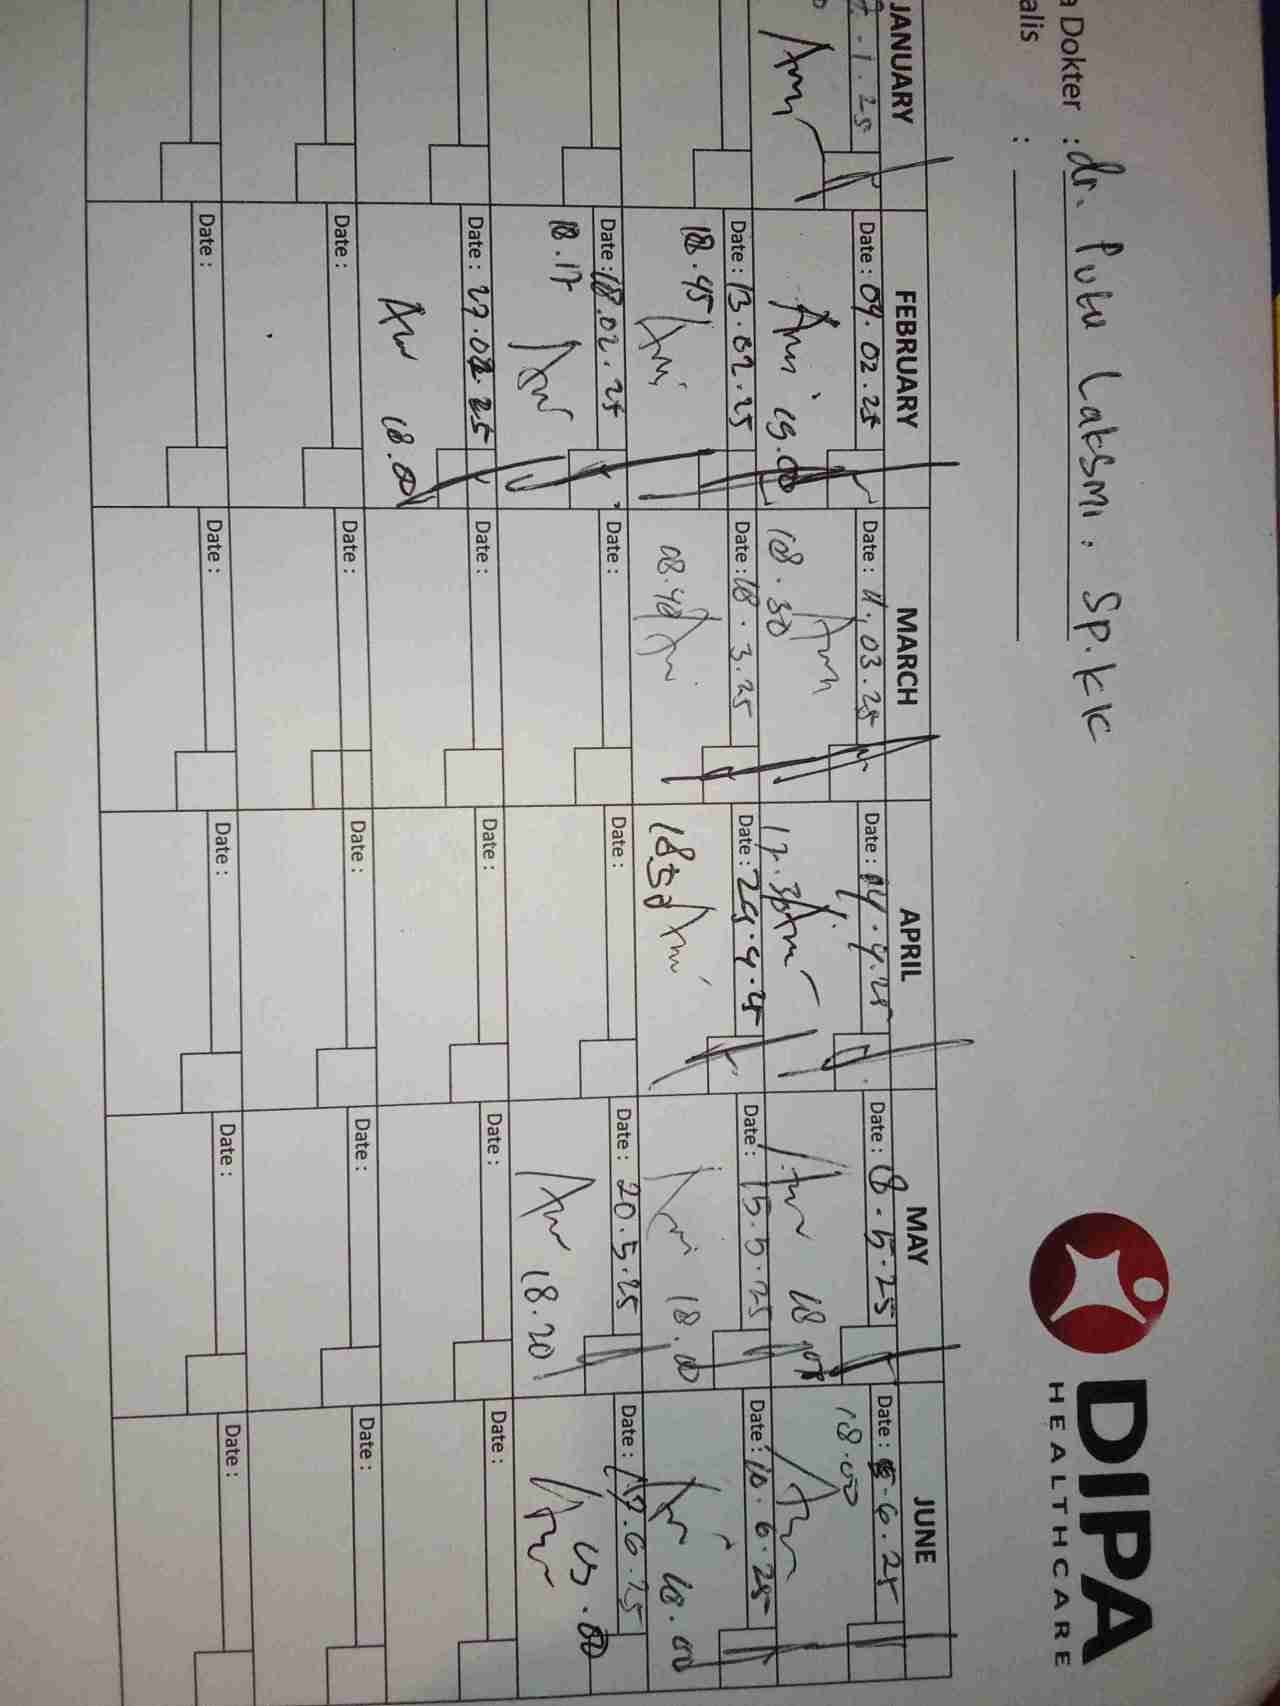 a Dokter : dr. Putu Laksmi. Sp.KK
alis :
DIPA
HEALTHCARE
JANUARY
FEBRUARY
MARCH
APRIL
MAY
JUNE
.1.25
Date : 04.02.25
Date : 11.03.25
Date : 14.4.25
Date : 8.5.25
Date : 5.6.25
19.00
18.30
17.30
18.00
Date : 13.02.25
Date : 18.3.25
Date : 29.4.25
Date : 15.5.25
Date : 10.6.25
18.45
18.50
18.00
18.00
Date : 18.02.25
Date :
Date :
Date : 20.5.25
Date : 17.6.25
18.17
18.20
Date : 27.02.25
Date :
Date :
Date :
Date :
18.00
Date :
Date :
Date :
Date :
Date :
Date :
Date :
Date :
Date :
Date :